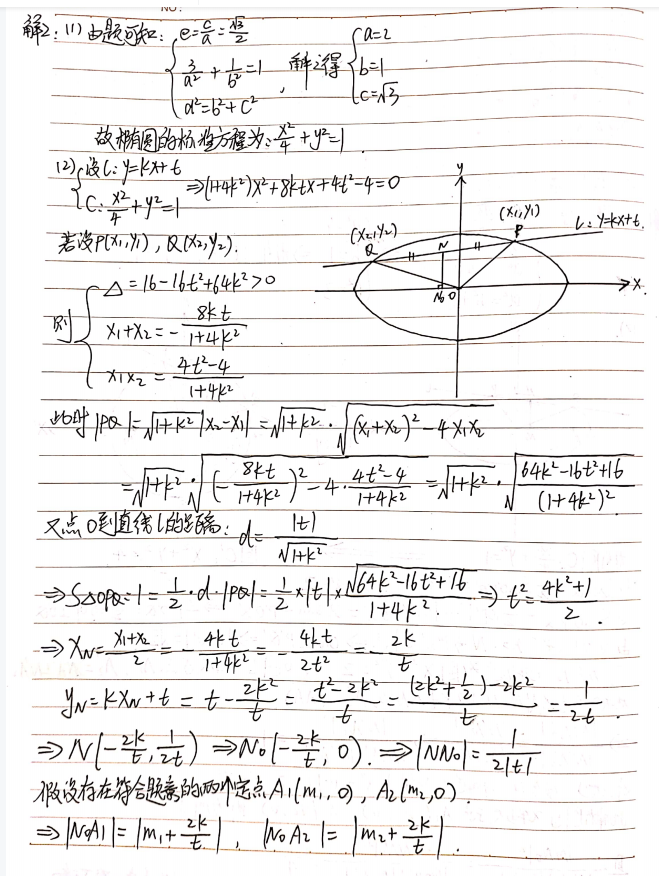 NO.
解:(1)由题可知: { e=c/a=√3/2
3/a²+1/b²=1
a²=b²+c² , 解之得 { a=2
b=1
c=√3
故椭圆的标准方程为: x²/4+y²=1.
(2) { 设l: y=kx+t
C: x²/4+y²=1 ⇒(1+4k²)x²+8ktx+4t²-4=0
若设P(x₁,y₁), Q(x₂,y₂).
则 { △=16-16t²+64k²>0
x₁+x₂=-8kt/(1+4k²)
x₁x₂=(4t²-4)/(1+4k²)
y
(x₂,y₂)
Q
N
(x₁,y₁)
P
l: y=kx+t.
N₀ O
x
此时|PQ|=√(1+k²)|x₂-x₁|=√(1+k²)·√((x₁+x₂)²-4x₁x₂)
=√(1+k²)·√((-8kt/(1+4k²))²-4·(4t²-4)/(1+4k²))=√(1+k²)·√((64k²-16t²+16)/(1+4k²)²)
又点O到直线l的距离: d=|t|/√(1+k²)
⇒S△OPQ=1=1/2·d·|PQ|=1/2×|t|×√(64k²-16t²+16)/(1+4k²). ⇒ t²=(4k²+1)/2.
⇒ x_N=(x₁+x₂)/2=-4kt/(1+4k²)=-4kt/2t²=-2k/t
y_N=kx_N+t=t-2k²/t=(t²-2k²)/t=((2k²+1/2)-2k²)/t=1/2t.
⇒N(-2k/t, 1/2t) ⇒N₀(-2k/t, 0). ⇒|NN₀|=1/2|t|
假设存在符合题意的两个定点A₁(m₁,0), A₂(m₂,0).
⇒|N₀A₁|=|m₁+2k/t|, |N₀A₂|=|m₂+2k/t|.